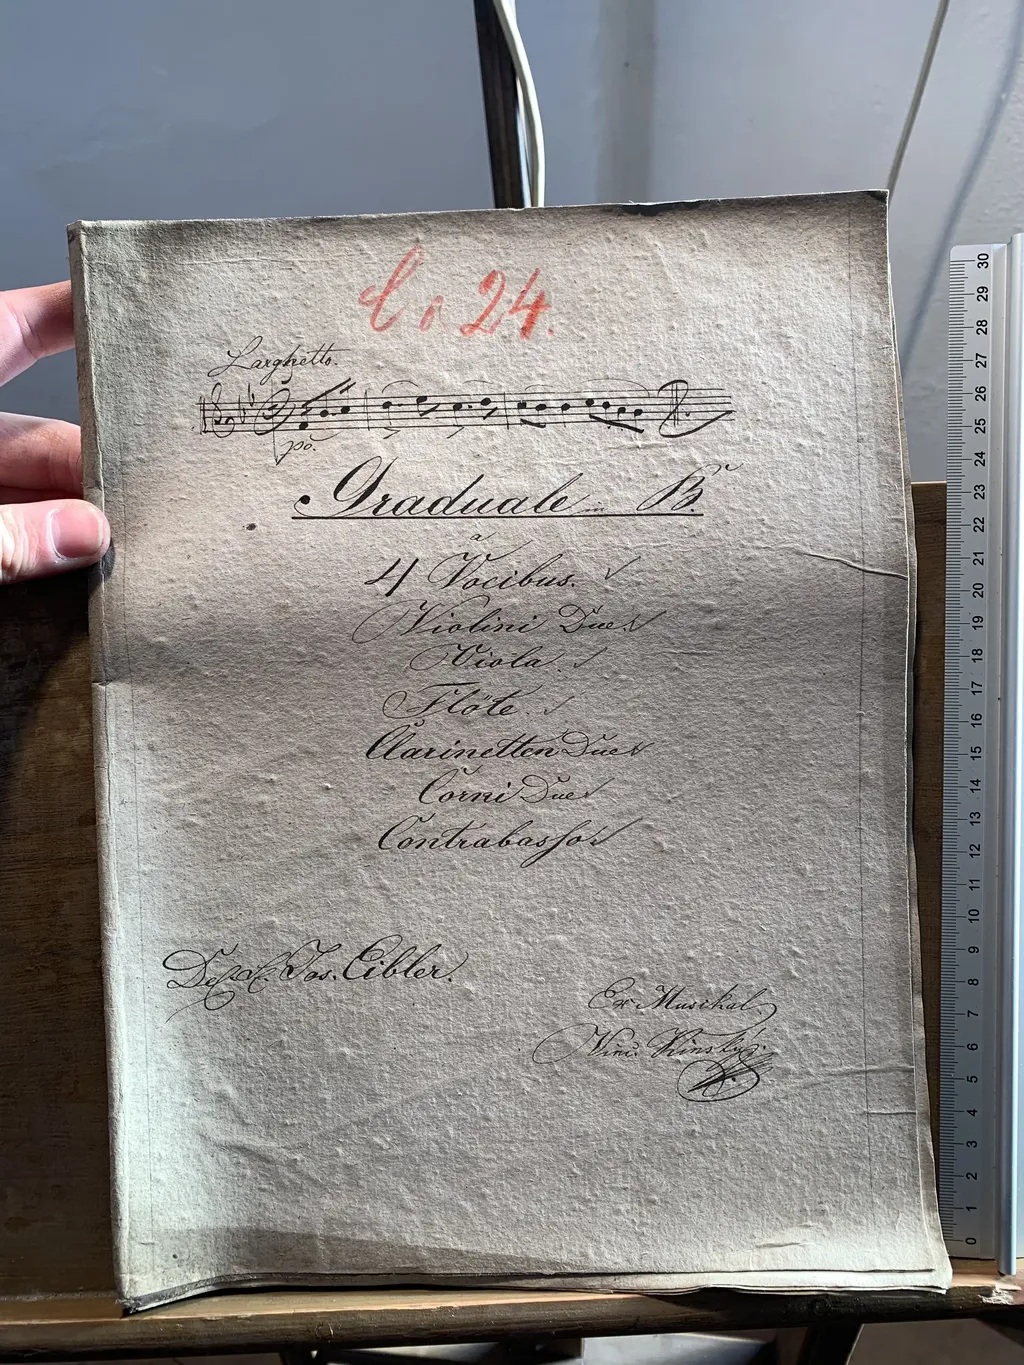 C. 24.
Larghetto.
po.
Graduale in B.
a
4 Vocibus.
Violini Due
Viola.
Flöte.
Clarinetten Due
Corni Due
Contrabasso
Del Sig. Jos. Eibler.
Ex Musikal
Vinc. Kinsky
30
29
28
27
26
25
24
23
22
21
20
19
18
17
16
15
14
13
12
11
10
9
8
7
6
5
4
3
2
1
0